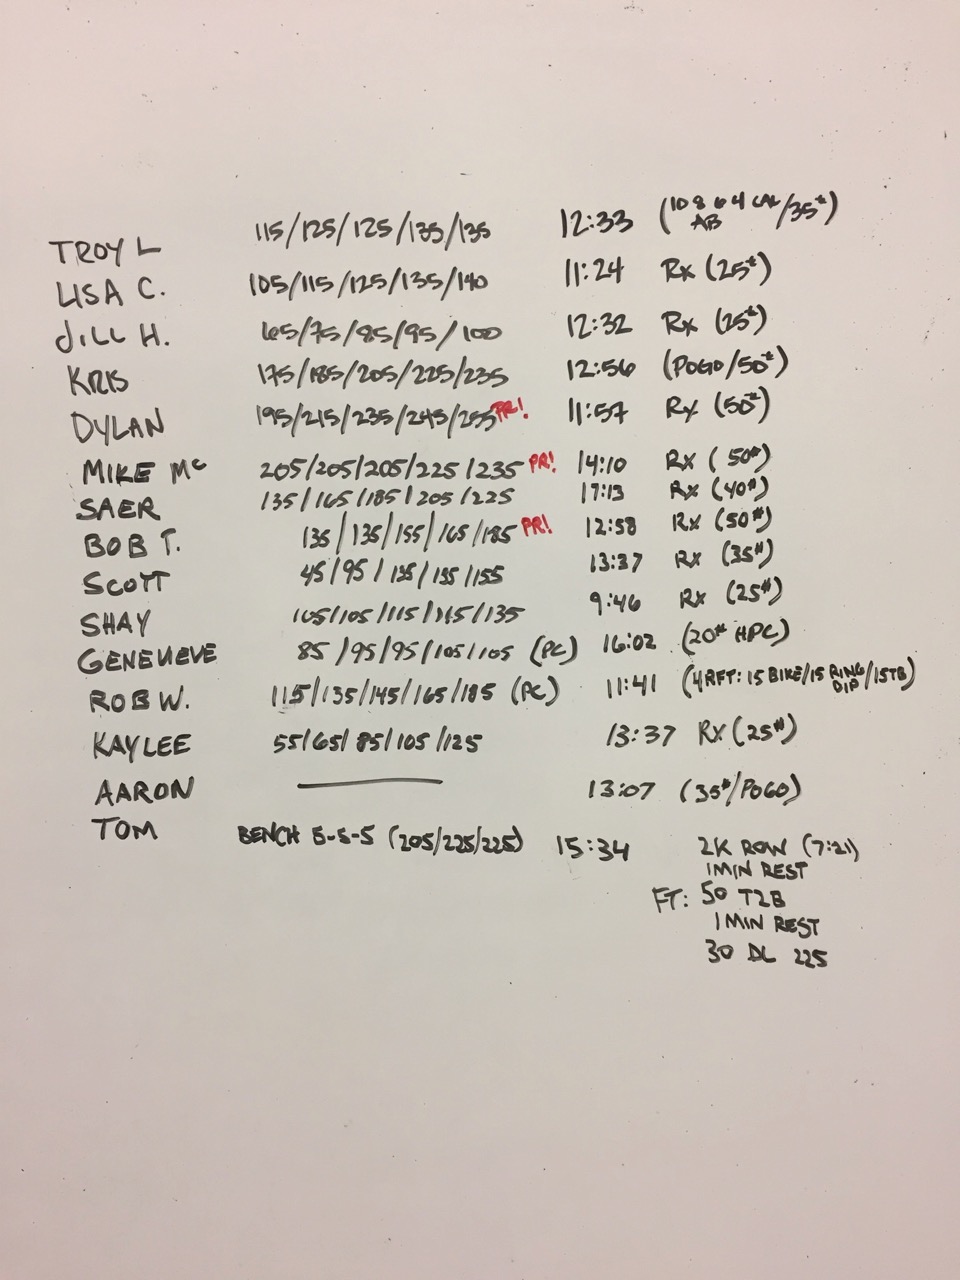 TROY L 115/125/125/135/135 12:33 (10 8 6 4 CAL AB/35#)
LISA C. 105/115/125/135/140 11:24 Rx (25#)
JILL H. 65/75/85/95/100 12:32 Rx (25#)
KRIS 175/185/205/225/235 12:56 (POGO/50#)
DYLAN 195/215/235/245/255 PR! 11:57 Rx (50#)
MIKE Mc 205/205/205/225/235 PR! 14:10 Rx (50#)
SAER 135/165/185/205/225 17:13 Rx (40#)
BOB T. 135/135/155/165/185 PR! 12:58 Rx (50#)
SCOTT 45/95/135/155/155 13:37 Rx (35#)
SHAY 105/105/115/125/135 9:46 Rx (25#)
GENEVIEVE 85/95/95/105/105 (PC) 16:02 (20# HPC)
ROB W. 115/135/145/165/185 (PC) 11:41 (4RFT: 15 BIKE/15 RING DIP/15TB)
KAYLEE 55/65/85/105/125 13:37 Rx (25#)
AARON 13:07 (35#/POGO)
TOM BENCH 5-5-5 (205/225/225) 15:34 2K ROW (7:21)
1 MIN REST
FT: 50 T2B
1 MIN REST
30 DL 225